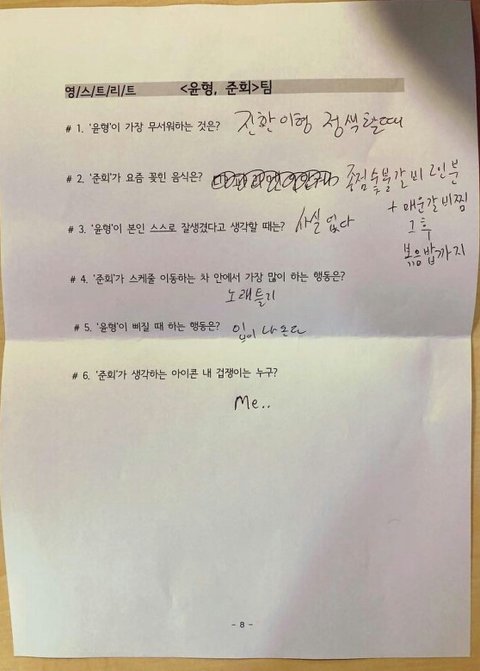 영/스/트/리/트 <윤형, 준회>팀
# 1. '윤형'이 가장 무서워하는 것은? 진환이형 정색할때
# 2. '준회'가 요즘 꽂힌 음식은? 종점숯불갈비 2인분
+ 매운갈비찜
그 후
볶음밥까지
# 3. '윤형'이 본인 스스로 잘생겼다고 생각할 때는? 사실 없다
# 4. '준회'가 스케줄 이동하는 차 안에서 가장 많이 하는 행동은?
노래틀기
# 5. '윤형'이 삐질 때 하는 행동은? 입이 나온다
# 6. '준회'가 생각하는 아이콘 내 겁쟁이는 누구?
Me..
- 8 -